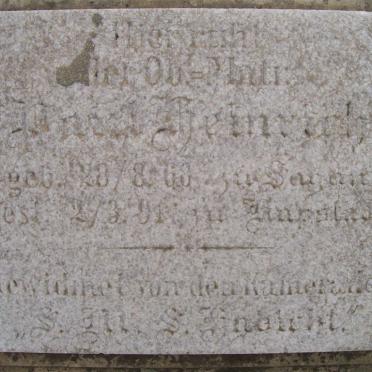 Hier ruht
der Ob=Matr.
Heinrich
geb. 28/8.66 zu Sagan
gest. 2/3.91. zu Kapstadt
Gewidmet von den Kameraden
„S. M. S. Habicht.“